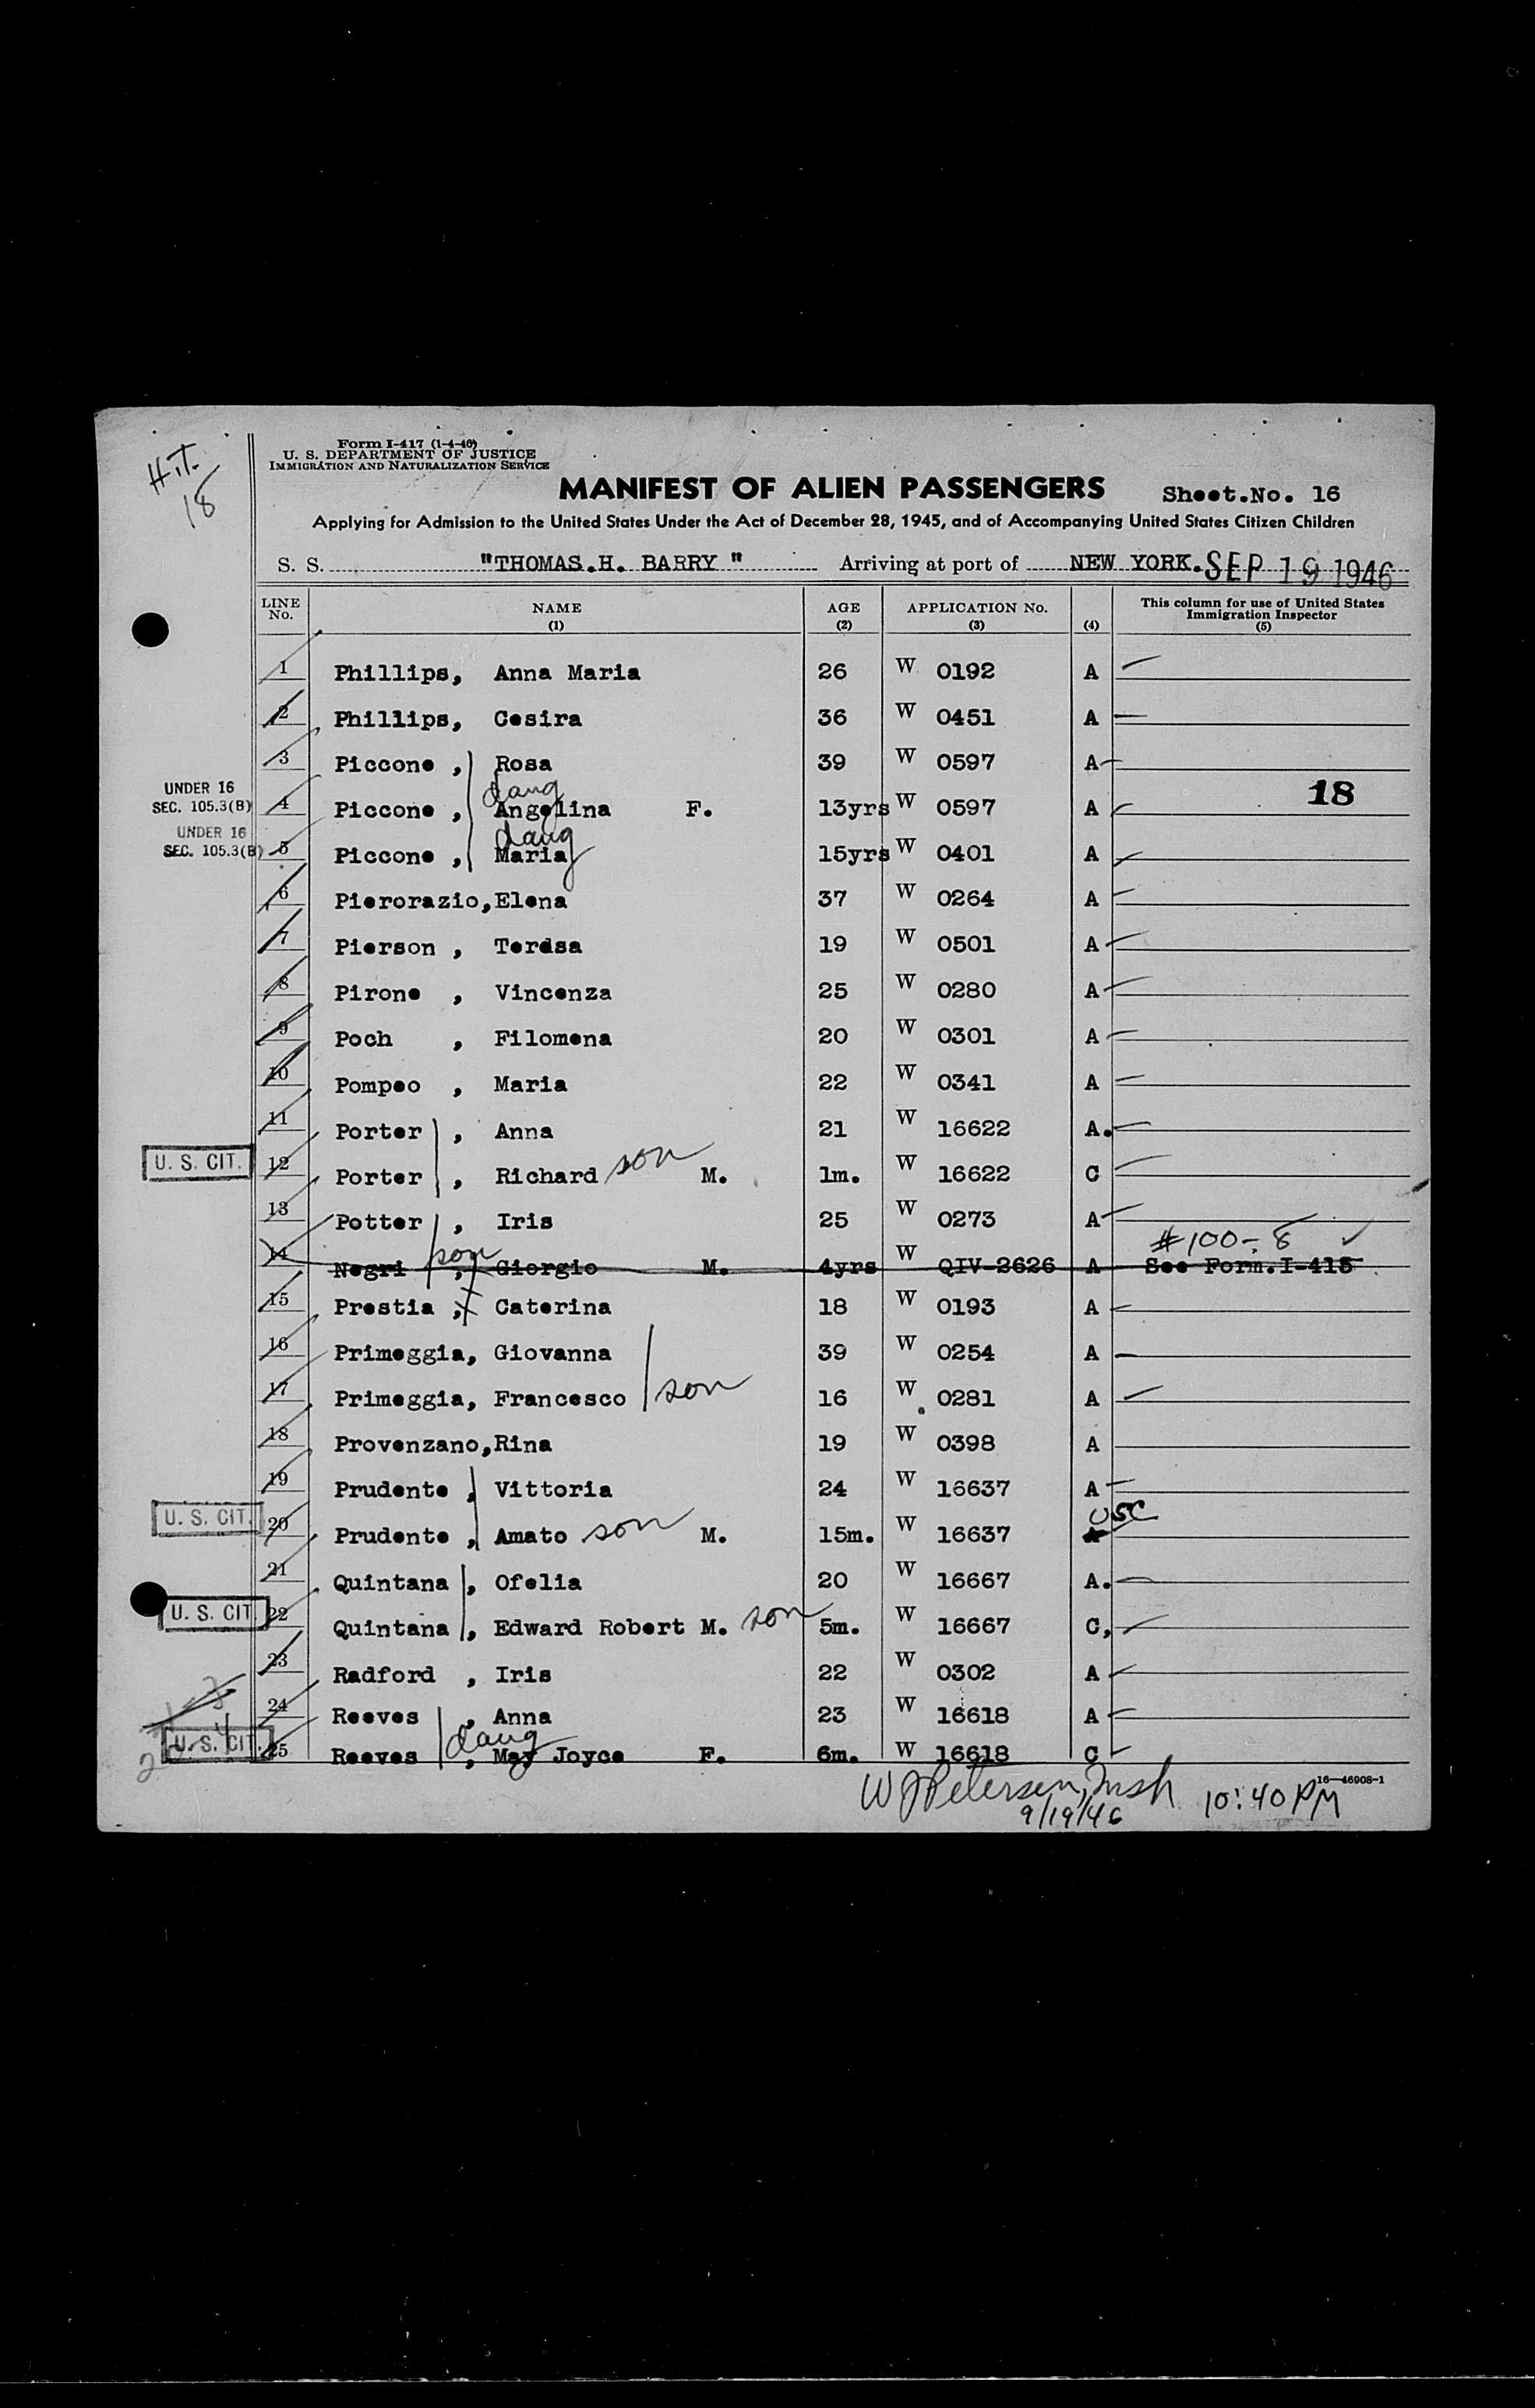 H.T.
18
Form I-417 (1-4-46)
U. S. DEPARTMENT OF JUSTICE
IMMIGRATION AND NATURALIZATION SERVICE
MANIFEST OF ALIEN PASSENGERS Sheet.No. 16
Applying for Admission to the United States Under the Act of December 28, 1945, and of Accompanying United States Citizen Children
S. S. "THOMAS.H. BARRY " Arriving at port of NEW YORK. SEP 19 1946
LINE No. NAME (1) AGE (2) APPLICATION No. (3) (4) This column for use of United States Immigration Inspector (5)
1 Phillips, Anna Maria 26 W 0192 A
2 Phillips, Cesira 36 W 0451 A
3 Piccone , Rosa 39 W 0597 A
UNDER 16 SEC. 105.3(B) 4 Piccone , Angelina daug F. 13yrs W 0597 A 18
UNDER 16 SEC. 105.3(B) 5 Piccone , Maria daug 15yrs W 0401 A
6 Pierorazio, Elena 37 W 0264 A
7 Pierson , Teresa 19 W 0501 A
8 Pirone , Vincenza 25 W 0280 A
9 Poch , Filomena 20 W 0301 A
10 Pompeo , Maria 22 W 0341 A
11 Porter , Anna 21 W 16622 A.
U. S. CIT. 12 Porter , Richard son M. 1m. W 16622 C
13 Potter , Iris 25 W 0273 A
14 Negri , son Giorgio M. 4yrs W QIV-2626 A #100-8 See Form.I-415
15 Prestia , Caterina 18 W 0193 A
16 Primeggia, Giovanna 39 W 0254 A
17 Primeggia, Francesco son 16 W 0281 A
18 Provenzano, Rina 19 W 0398 A
19 Prudente , Vittoria 24 W 16637 A
U. S. CIT. 20 Prudente , Amato son M. 15m. W 16637 A USC
21 Quintana , Ofelia 20 W 16667 A.
U. S. CIT 22 Quintana , Edward Robert M. son 5m. W 16667 C,
23 Radford , Iris 22 W 0302 A
24 Reeves , Anna 23 W 16618 A
U. S. CIT. 25 Reeves , May Joyce daug F. 6m. W 16618 C
16—46908-1
W J Petersen, Insp 10:40 PM
9/19/46